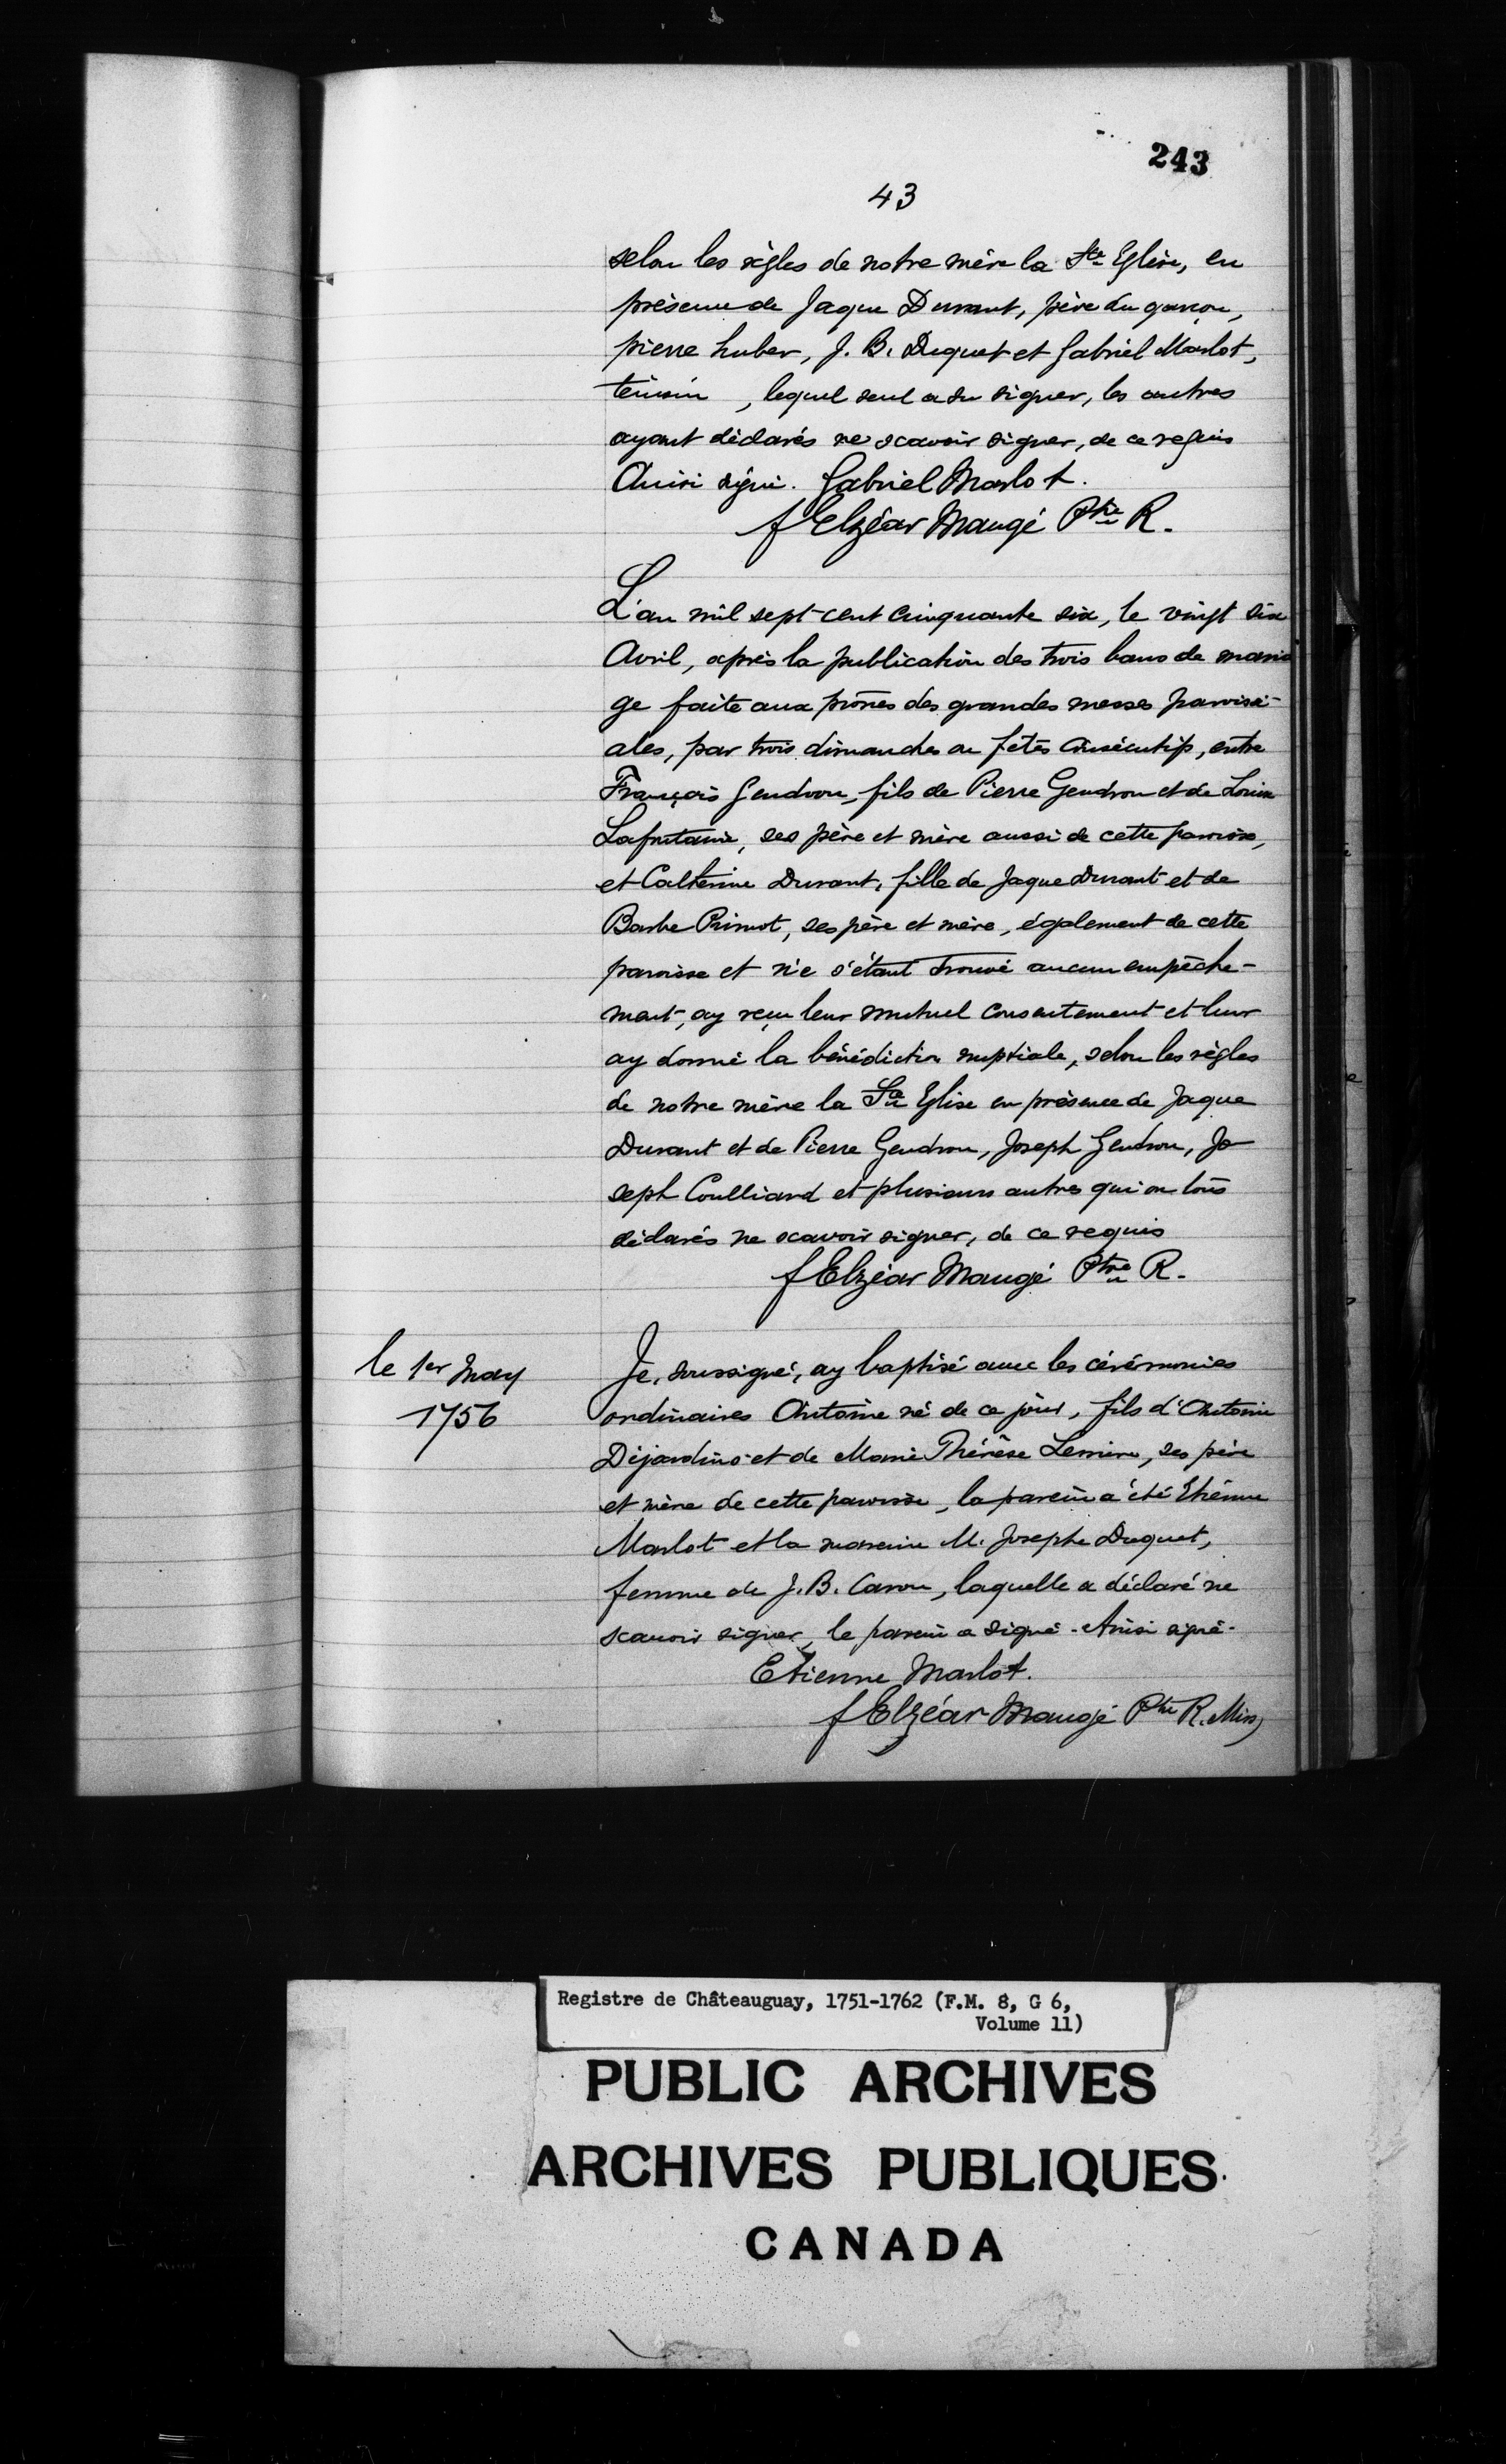 243
43
selon les règles de notre mère la Ste Eglise, en
présence de Jaque Durant, père du garçon,
pierre huber, J. B. Duquet et Gabriel Marlot,
témoin , lequel seul a su signer, les autres
ayant déclarés ne scavoir signer, de ce requis
Ainsi signé. Gabriel Marlot.
f Elzéar Maugé Ptre R.
L'an mil sept-cent cinquante six, le vingt six
Avril, après la publication des trois bans de maria
ge faite aux prônes des grandes messes paroissi-
ales, par trois dimanches ou fêtes consécutifs, entre
François Gendron, fils de Pierre Gendron et de Louise
Lafontaine, ses père et mère aussi de cette paroisse,
et Catherine Durant, fille de Jaque Durant et de
Barbe Primot, ses père et mère, également de cette
paroisse et n'e s'étant trouvé aucun empêche-
ment, ay reçu leur mutuel consentement et leur
ay donné la bénédiction nuptiale, selon les règles
de notre mère la Ste Eglise en présence de Jaque
Durant et de Pierre Gendron, Joseph Gendron, Jo
seph Coulliard et plusieurs autres qui on tous
déclarés ne scavoir signer, de ce requis
f Elzéar Maugé Ptre R.
le 1er May
1756
Je, soussigné, ay baptisé avec les cérémonies
ordinaires Antoine né de ce jour, fils d'Antoine
Déjardins et de Marie Thérèse Lemire, ses père
et mère de cette paroisse, la parein a été Etiénne
Marlot et la mareine M. Josephe Duquet,
femme de J. B. Caron, laquelle a déclaré ne
scavoir signer, le parein a signé - Ainsi signé -
Etienne Marlot.
f Elzéar Maugé Ptre R. Miss
Registre de Châteauguay, 1751-1762 (F.M. 8, G 6,
Volume 11)
PUBLIC ARCHIVES
ARCHIVES PUBLIQUES
CANADA